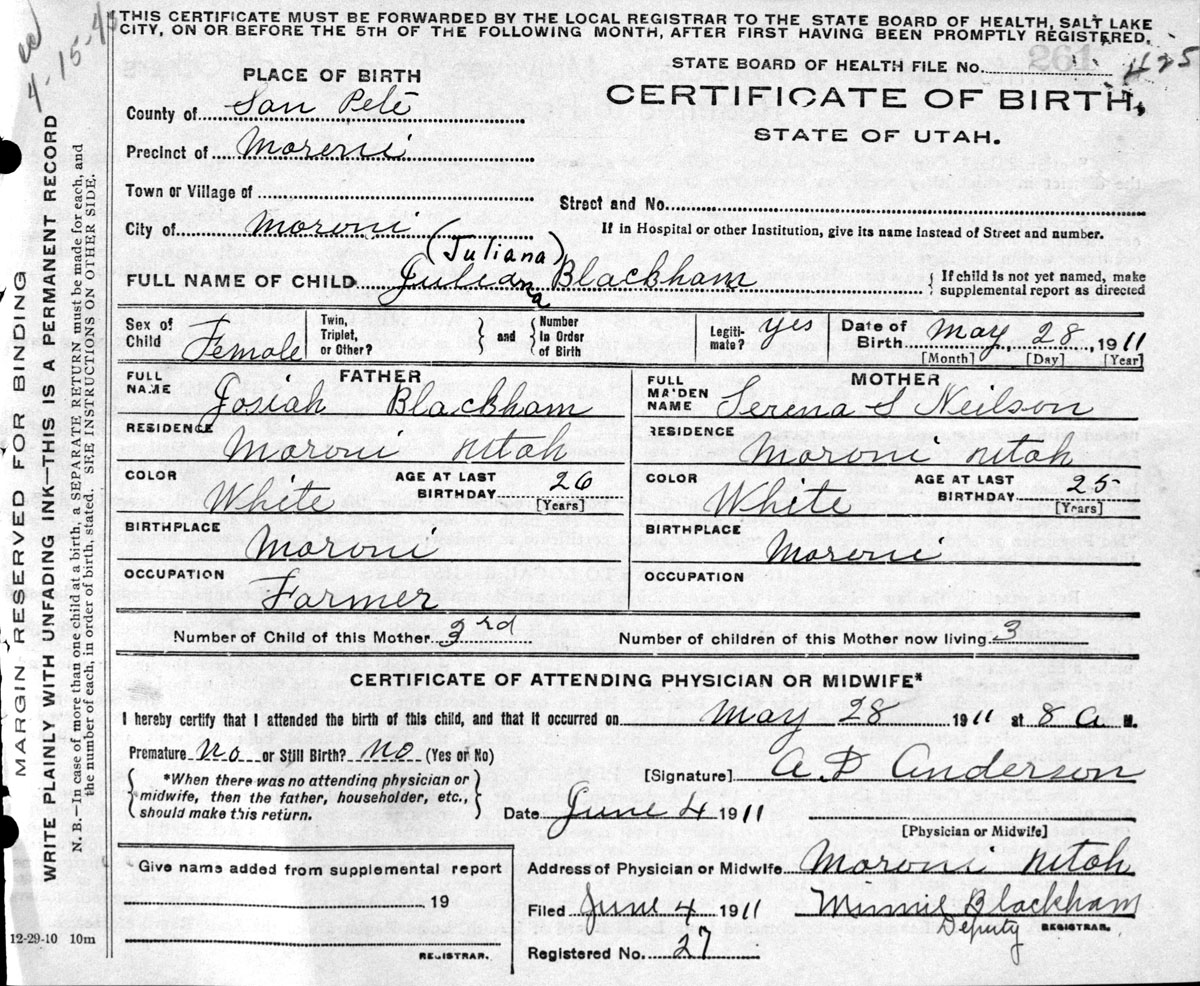 W
4-15-40
THIS CERTIFICATE MUST BE FORWARDED BY THE LOCAL REGISTRAR TO THE STATE BOARD OF HEALTH, SALT LAKE
CITY, ON OR BEFORE THE 5TH OF THE FOLLOWING MONTH, AFTER FIRST HAVING BEEN PROMPTLY REGISTERED.
MARGIN RESERVED FOR BINDING
WRITE PLAINLY WITH UNFADING INK—THIS IS A PERMANENT RECORD
N. B.—In case of more than one child at a birth, a SEPARATE RETURN must be made for each, and
the number of each, in order of birth, stated. SEE INSTRUCTIONS ON OTHER SIDE.
STATE BOARD OF HEALTH FILE No. 261 425
CERTIFICATE OF BIRTH,
STATE OF UTAH.
PLACE OF BIRTH
County of San Pete
Precinct of Moroni
Town or Village of
Street and No.
City of Moroni
If in Hospital or other Institution, give its name instead of Street and number.
(Juliana)
FULL NAME OF CHILD Juliana Blackham
If child is not yet named, make
supplemental report as directed
Sex of Child Female
Twin, Triplet, or Other?
and
Number In Order of Birth
Legiti-mate? yes
Date of Birth May 28, 1911
[Month] [Day] [Year]
FATHER
FULL NAME Josiah Blackham
RESIDENCE Moroni Utah
COLOR White
AGE AT LAST BIRTHDAY 26
[Years]
BIRTHPLACE Moroni
OCCUPATION Farmer
MOTHER
FULL MAIDEN NAME Serena S Neilson
RESIDENCE Moroni Utah
COLOR White
AGE AT LAST BIRTHDAY 25
[Years]
BIRTHPLACE Moroni
OCCUPATION
Number of Child of this Mother 3rd
Number of children of this Mother now living 3
CERTIFICATE OF ATTENDING PHYSICIAN OR MIDWIFE*
I hereby certify that I attended the birth of this child, and that it occurred on May 28 1911 at 8 a M.
Premature no or Still Birth? no (Yes or No)
*When there was no attending physician or
midwife, then the father, householder, etc.,
should make this return.
[Signature] A D Anderson
Date June 4 1911
[Physician or Midwife]
Give name added from supplemental report
19
REGISTRAR.
Address of Physician or Midwife Moroni Utah
Filed June 4 1911 Minnie Blackham
Deputy REGISTRAR.
Registered No. 27
12-29-10 10m